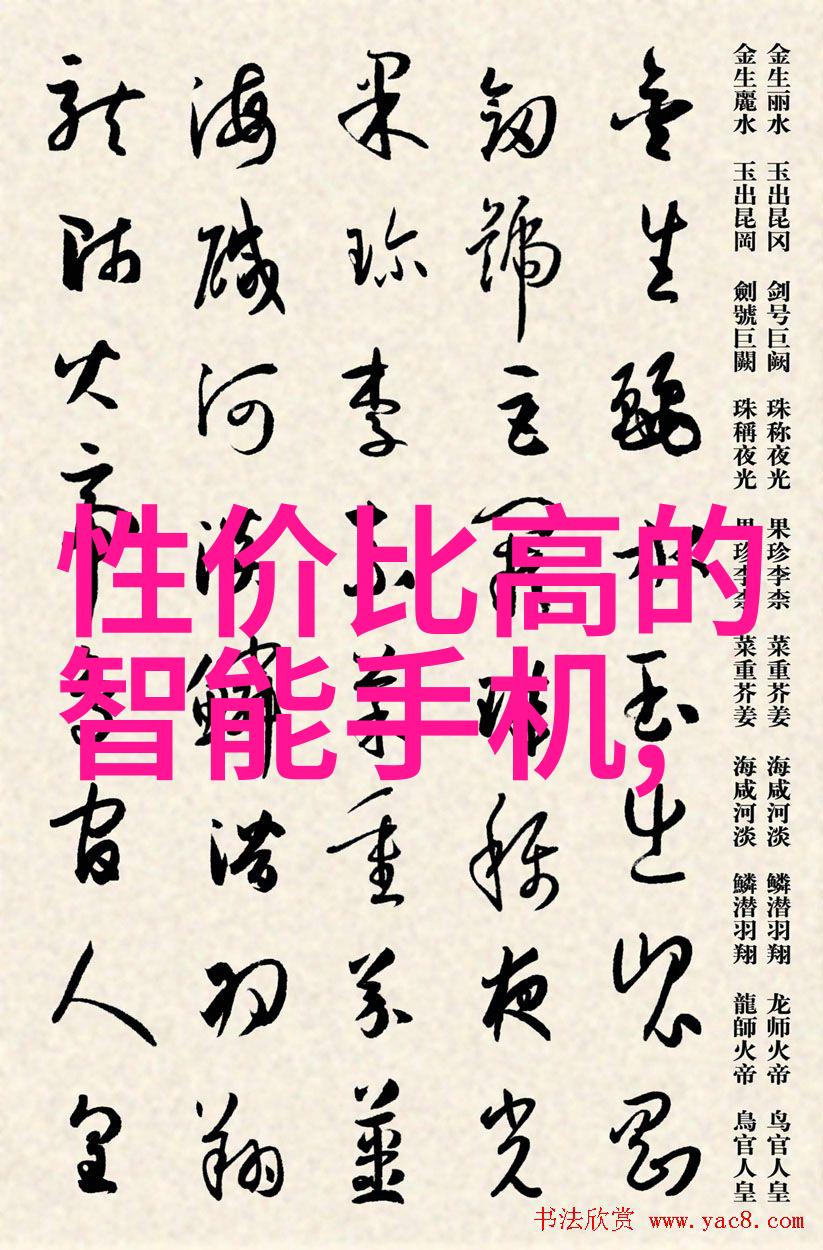 性价比高的
智能手机,
金生丽水 玉出昆冈 剑号巨阙 珠称夜光 果珍李柰 菜重芥姜 海咸河淡 鳞潜羽翔 龙师火帝 鸟官人皇
金生麗水 玉出昆岡 劍號巨闕 珠稱夜光 果珍李柰 菜重芥姜 海咸河淡 鱗潜羽翔 龍師火帝 鳥官人皇
金生麗水玉出崐岡
劍號巨闕珠稱夜光
果珍李柰菜重芥薑
海鹹河淡鱗潛羽翔
龍師火帝鳥官人皇
书法欣赏 www.yac8.com